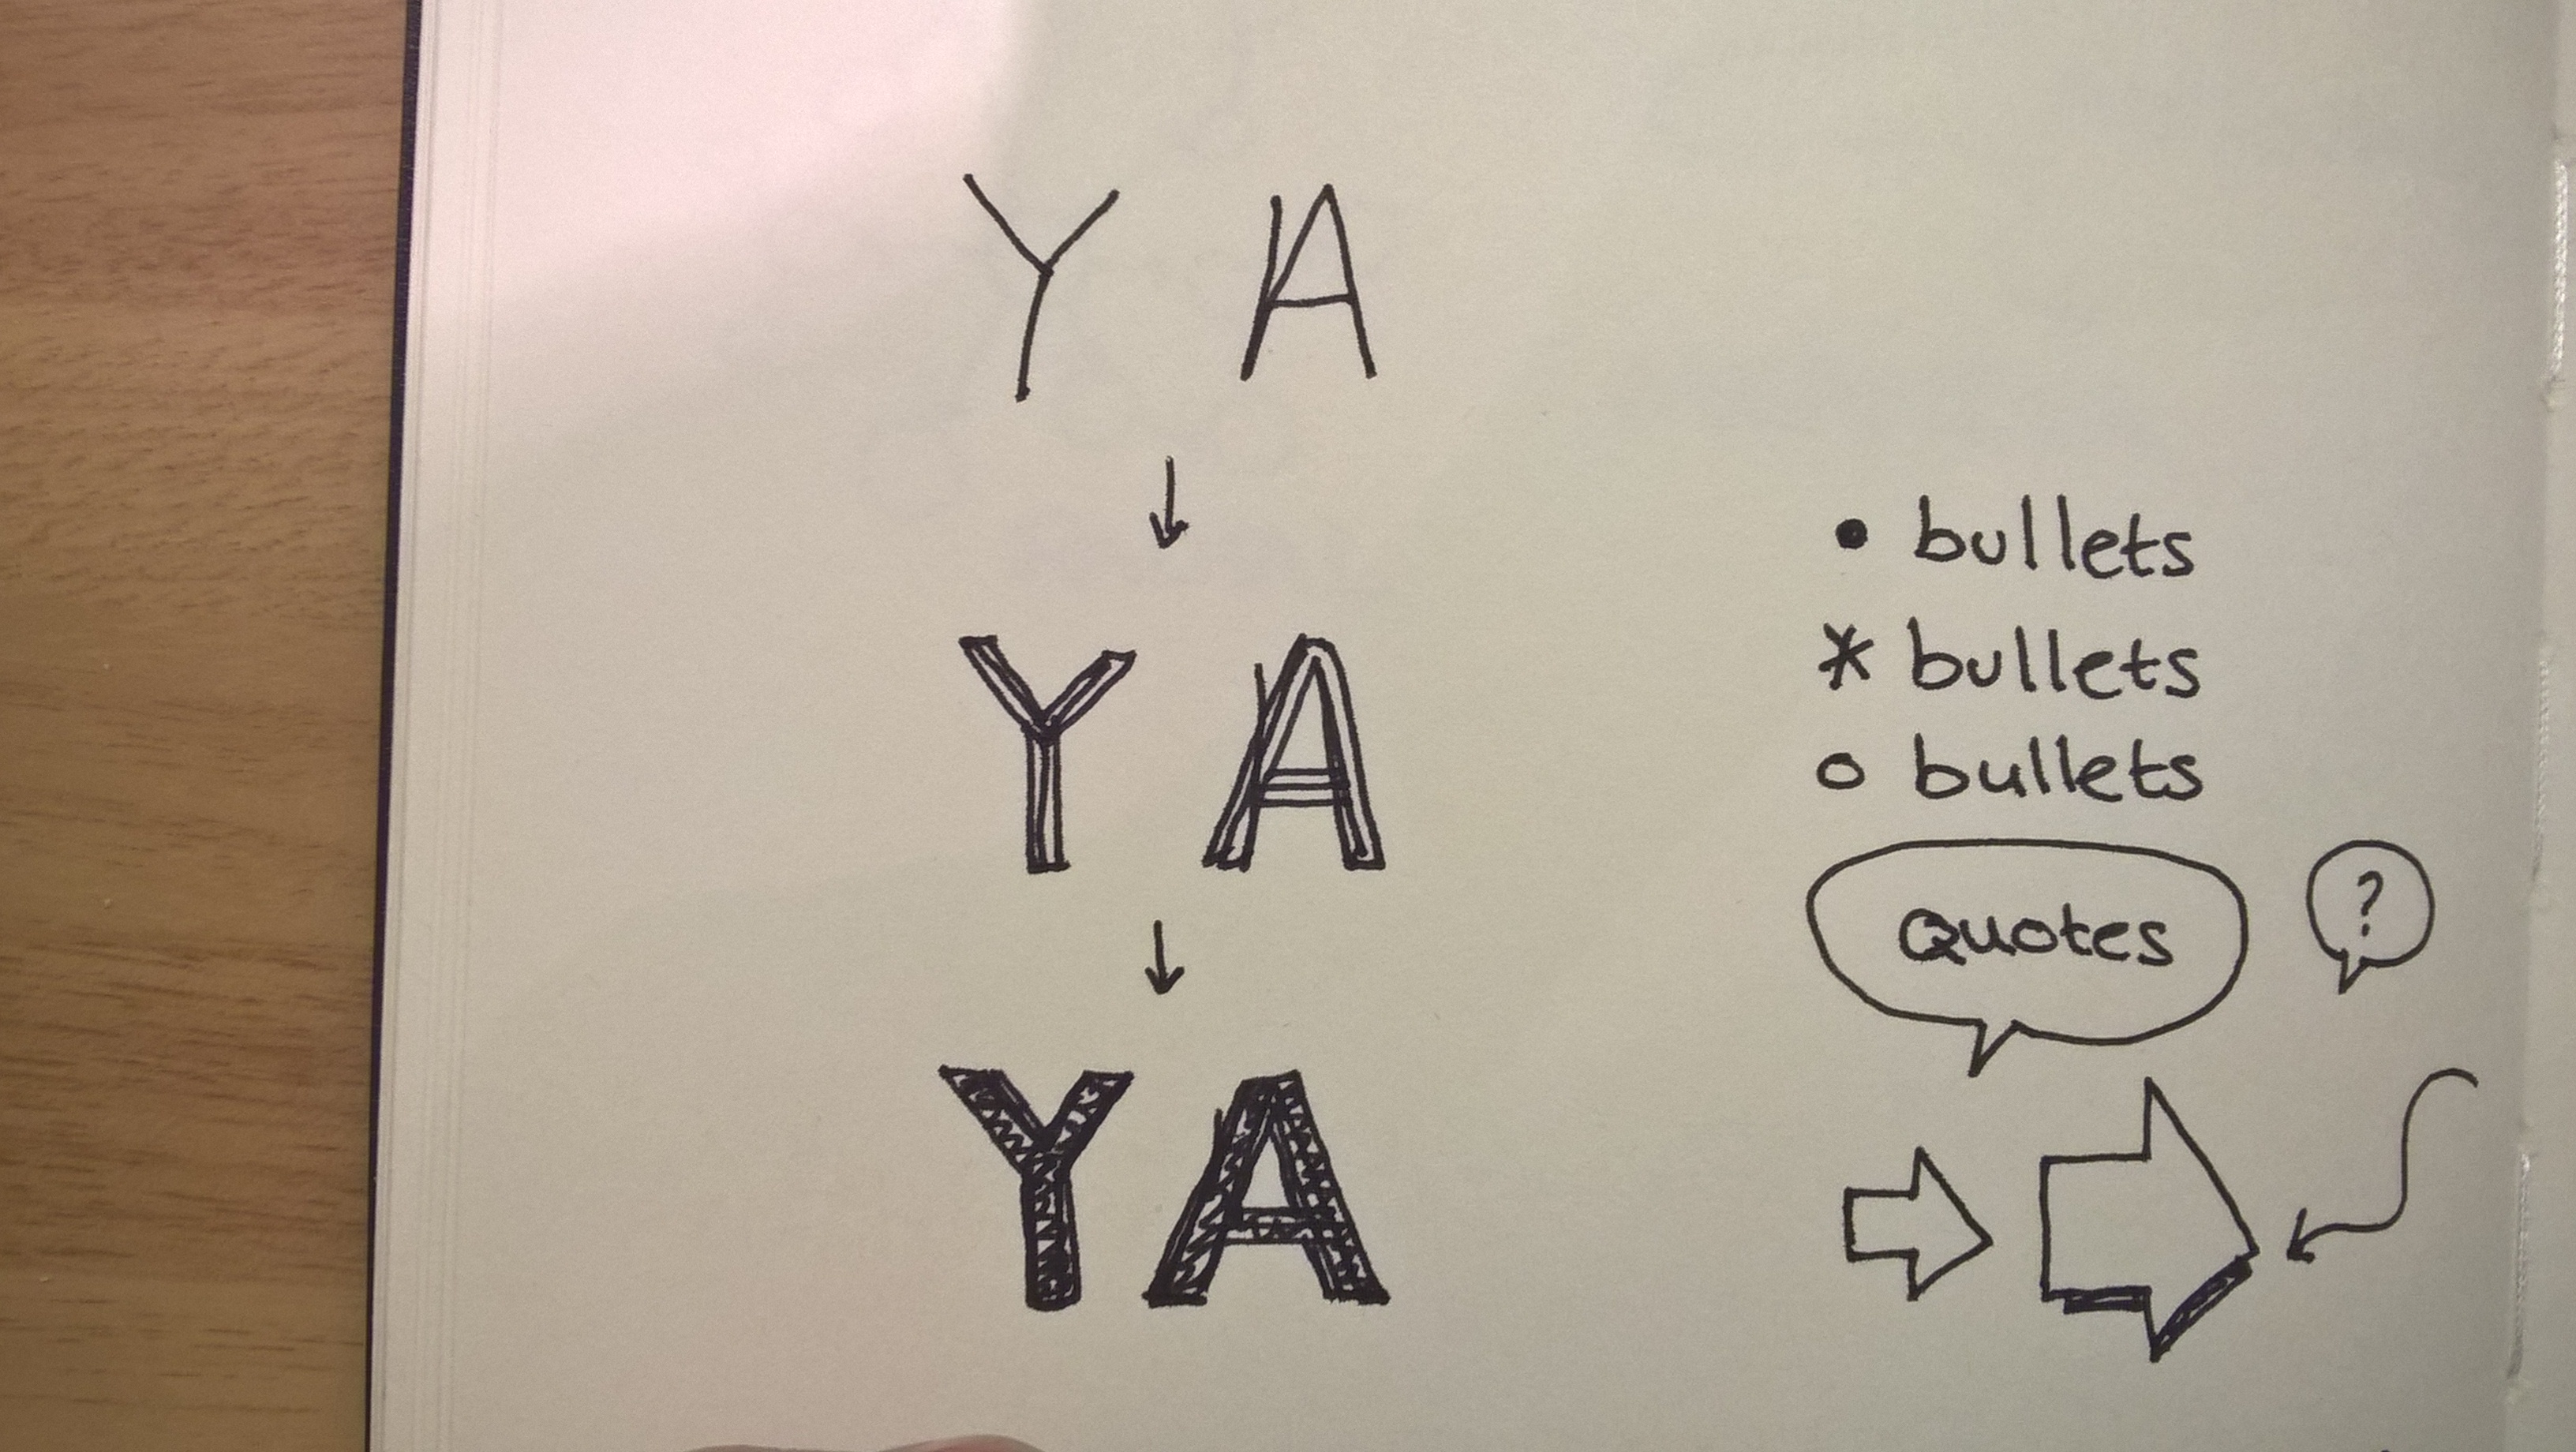 Y A
↓
Y A
↓
YA
• bullets
* bullets
○ bullets
Quotes
?